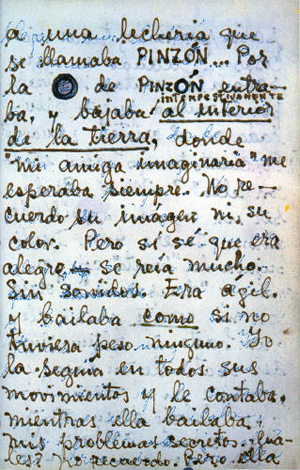 a una lechería que
se llamaba PINZÓN... Por
la O de PINZÓN entra-
ba, y bajaba INTEMPESTIVAMENTE al interior
de la tierra, donde
"mi amiga imaginaria" me
esperaba siempre. No re-
cuerdo su imagen ni su
color. Pero sí sé que era
alegre - se reía mucho.
Sin sonidos. Era agil.
y bailaba como si no
tuviera peso ninguno. Yo
la seguia en todos sus
movimientos y le contaba,
mientras ella bailaba,
mis problemas secretos. Cuá-
les? No recuerdo. Pero ella